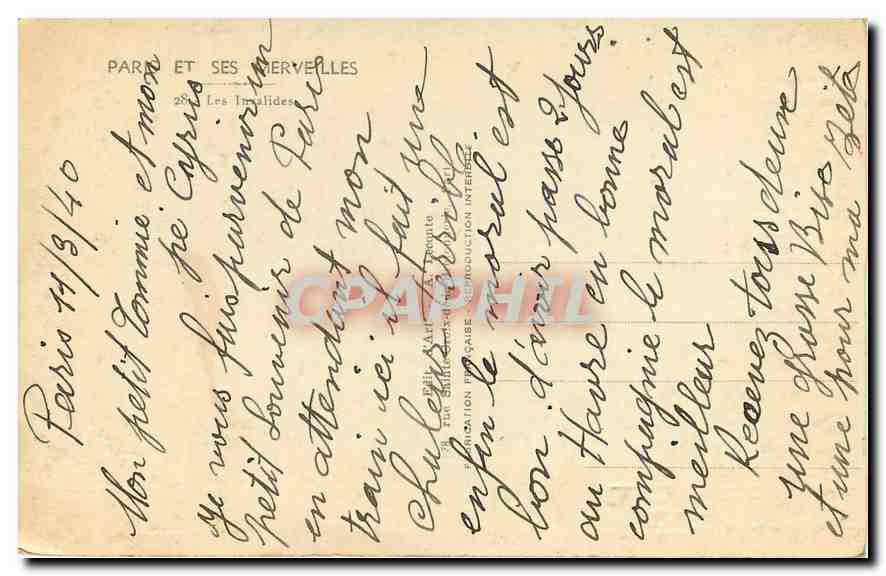 PARIS ET SES MERVEILLES
28. Les Invalides
Edit. d'Art A. Leconte
38 rue Sainte-Croix-de-la-Bretonnerie, Paris
FABRICATION FRANÇAISE REPRODUCTION INTERDITE
CPAPHIL
Paris 11/3/40
Mon petit Tommie et mon
pe Cyprio
Je vous fais parvenir un
petit souvenir de Paris
en attendant mon
train ici il fait une
chaleur terrible
enfin le moral est
bon d'avoir passé 2 jours
au Havre en bonne
compagnie le moral est
meilleur
Recevez tous deux
une Grosse Bise
et une pour ma Zete